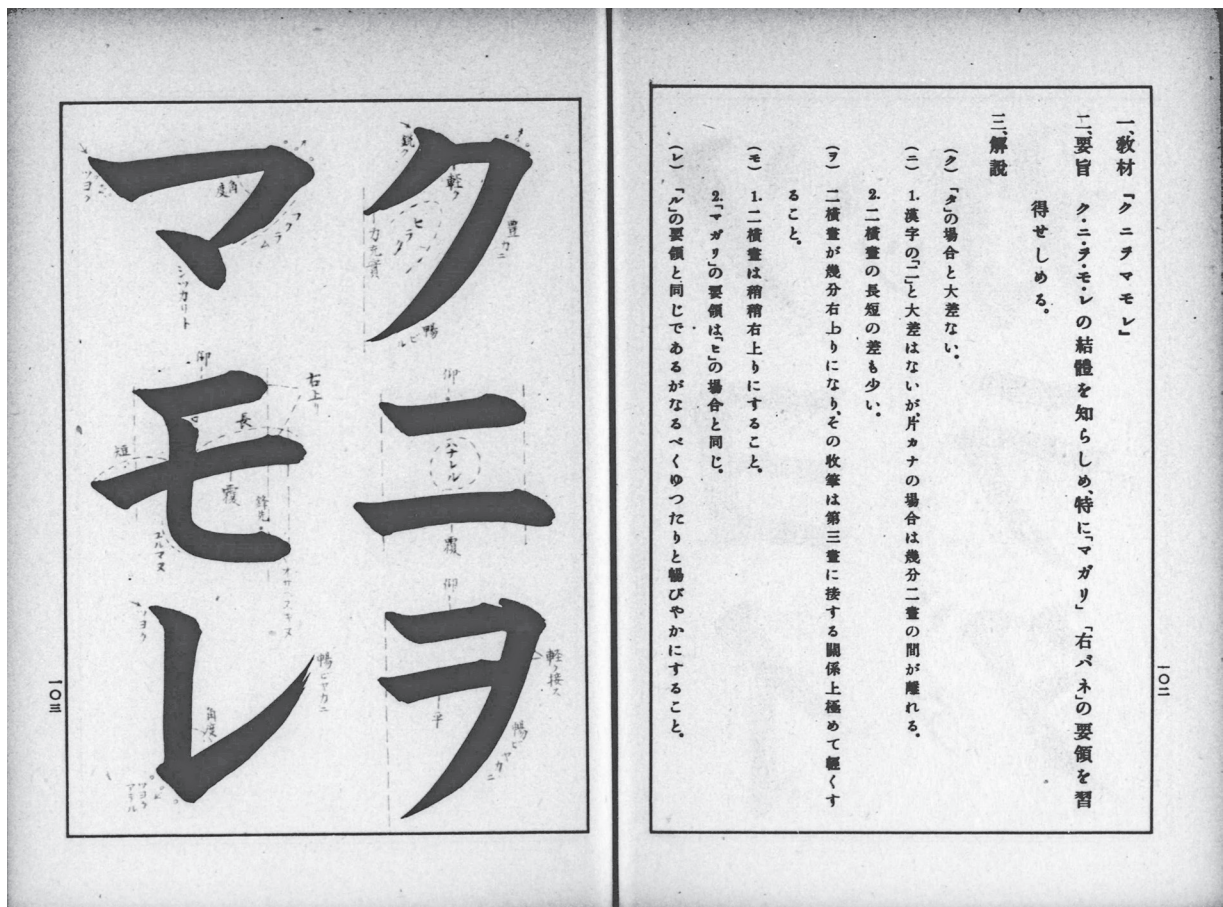 一、教材 『クニヲマモレ』
二、要旨 ク・ニ・ヲ・モ・レの結體を知らしめ、特に「マガリ」「右バネ」の要領を習
得せしめる。
三、解説
(ク) 「タ」の場合と大差ない。
(ニ) 1. 漢字の「二」と大差はないが、片カナの場合は幾分二畫の間が離れる。
2. 二横畫の長短の差も少い。
(ヲ) 二横畫が幾分右上りになり、その收筆は第三畫に接する關係上極めて輕くす
ること。
(モ) 1. 二横畫は稍稍右上りにすること。
2. 「マガリ」の要領は「ヒ」の場合と同じ。
(レ) 「ル」の要領と同じであるがなるべくゆつたりと暢びやかにすること。
一〇二
クニヲ
鋭ク
輕ク
豊カニ
ヒラク
暢ビル
仰
ハナレル
覆
仰
輕ク接ス
平
暢ビヤカニ
マモレ
ツヨク
角度
フクラム
シツカリト
仰
右上リ
長
短
覆
鋒先
ユルマヌ
ヨク
暢ビヤカニ
角度
一〇三